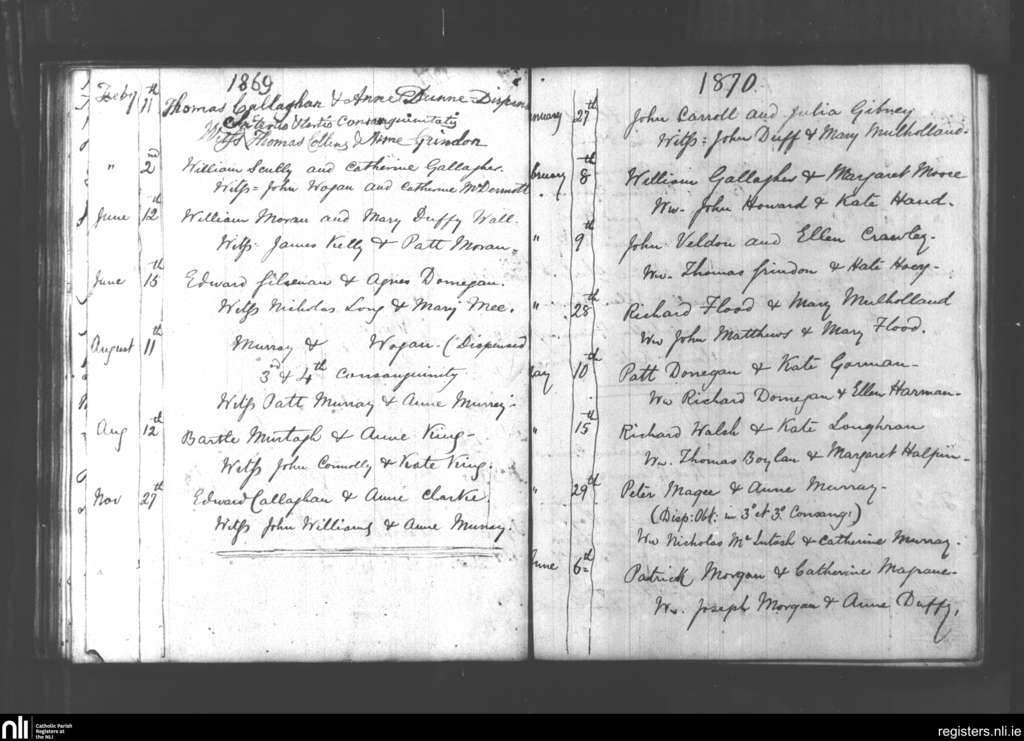 1869
Feby 11th Thomas Callaghan & Anne Dunne Dispens
Consanguinitatis
Witss Thomas Collins & Anne Grindon
" 2nd William Scully and Catherine Gallagher.
Witss = John Wogan and Catherine McDermott
June 12th William Moran and Mary Duffy Wall.
Witss. James Kelly & Patt Moran.
June 15th Edward Gilsenan & Agnes Donegan.
Witss Nicholas Long & Mary Mee.
August 11th Murray & Wogan. (Dispensed
3rd & 4th Consanguinity
Witss Patt Murray & Anne Murray.
Aug 12th Bartle Murtagh & Anne King -
Witss John Connolly & Kate King.
Nov 27th Edward Callaghan & Anne Clarke.
Witss John Williams & Anne Murray.
1870.
anuary 27th John Carroll and Julia Gibney
Witss: John Duff & Mary Mulholland.
bruary 8th William Gallagher & Margaret Moore
Ww. John Howard & Kate Hand.
" 9th John Veldon and Ellen Crawley.
Ww. Thomas Grindon & Kate Hoey.
" 28th Richard Flood & Mary Mulholland
Ww John Matthews & Mary Flood.
ay 10th Patt Donegan & Kate Gorman.
Ww Richard Donegan & Ellen Harman.
" 15th Richard Walsh & Kate Loughran
Ww. Thomas Boylan & Margaret Halpin.
" 29th Peter Magee & Anne Murray.
(Disp: Obt: in 3° et 3° Consang:)
Ww Nicholas McIntosh & Catherine Murray.
une 6th Patrick Morgan & Catherine Magrane.
Ww. Joseph Morgan & Anne Duffy.
nli
Catholic Parish
Registers at
the NLI
registers.nli.ie